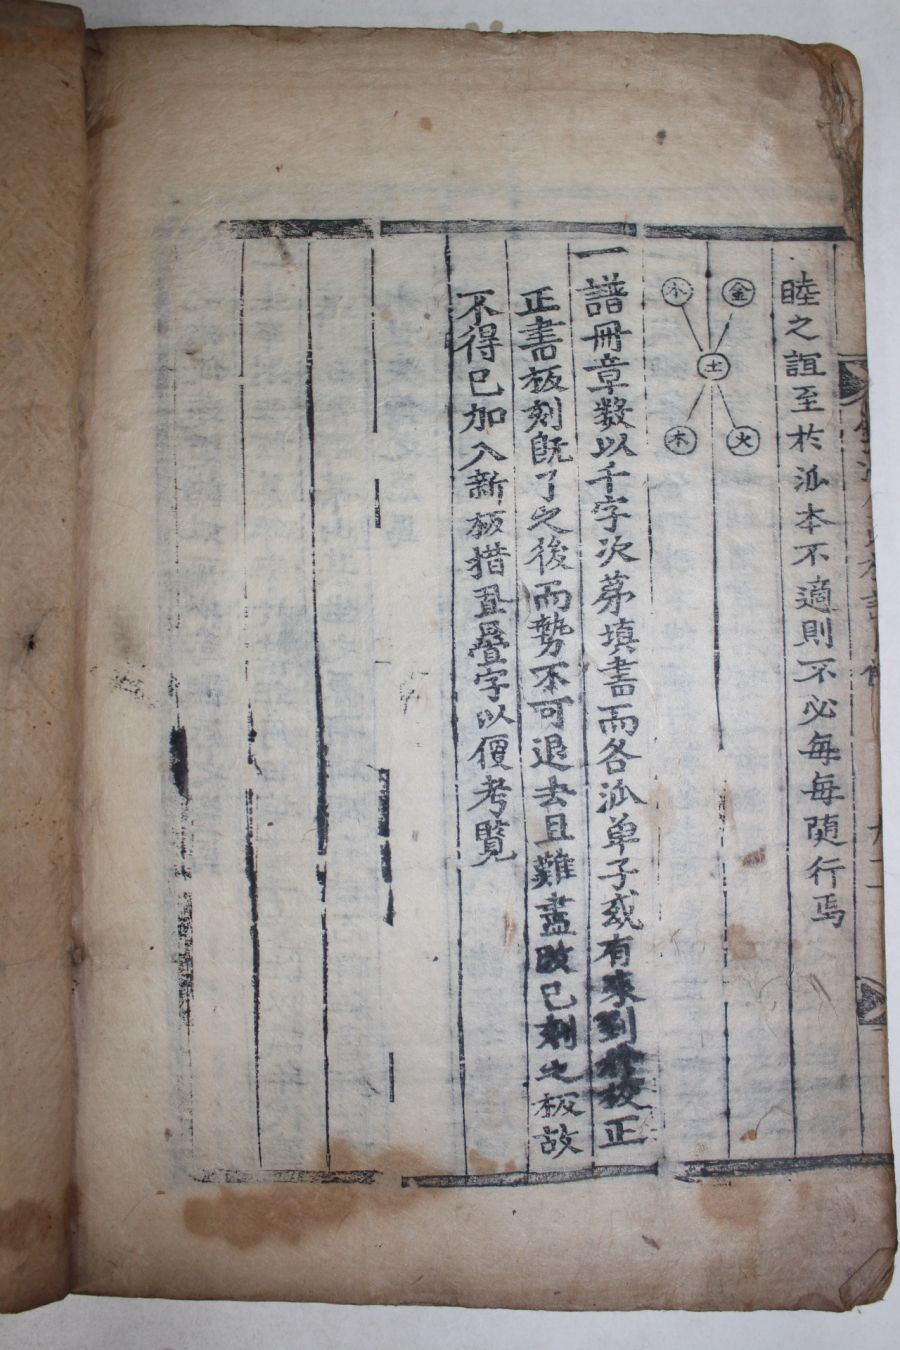 睦之誼至於派本不適則不必每每隨行焉
金 水
土
火 木
一譜冊章數以千字次苐填書而各派单子或有来到於校正
正書板刻既了之後而勢不可退去且難盡改已刻之板故
不得已加入新板措畳疊字以便考覧